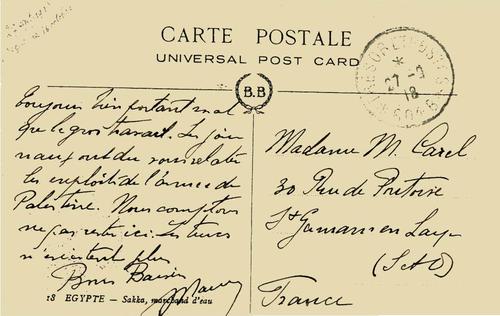 CARTE POSTALE
UNIVERSAL POST CARD
TRESOR ET POSTES
*
27-9
18
*
B.B
Toujours bien portant mal
que le gros travail. Les jour
naux ont du vous relater
les exploits de l'armée de
Palestine. Nous comptons
ne pas rester ici. Les turcs
n'existent plus
Bons Baisers
Madame M. Carel
30 Rue de Pontoise
St Germain en Laye
(S & O)
France
18 EGYPTE — Sakka, marchand d'eau